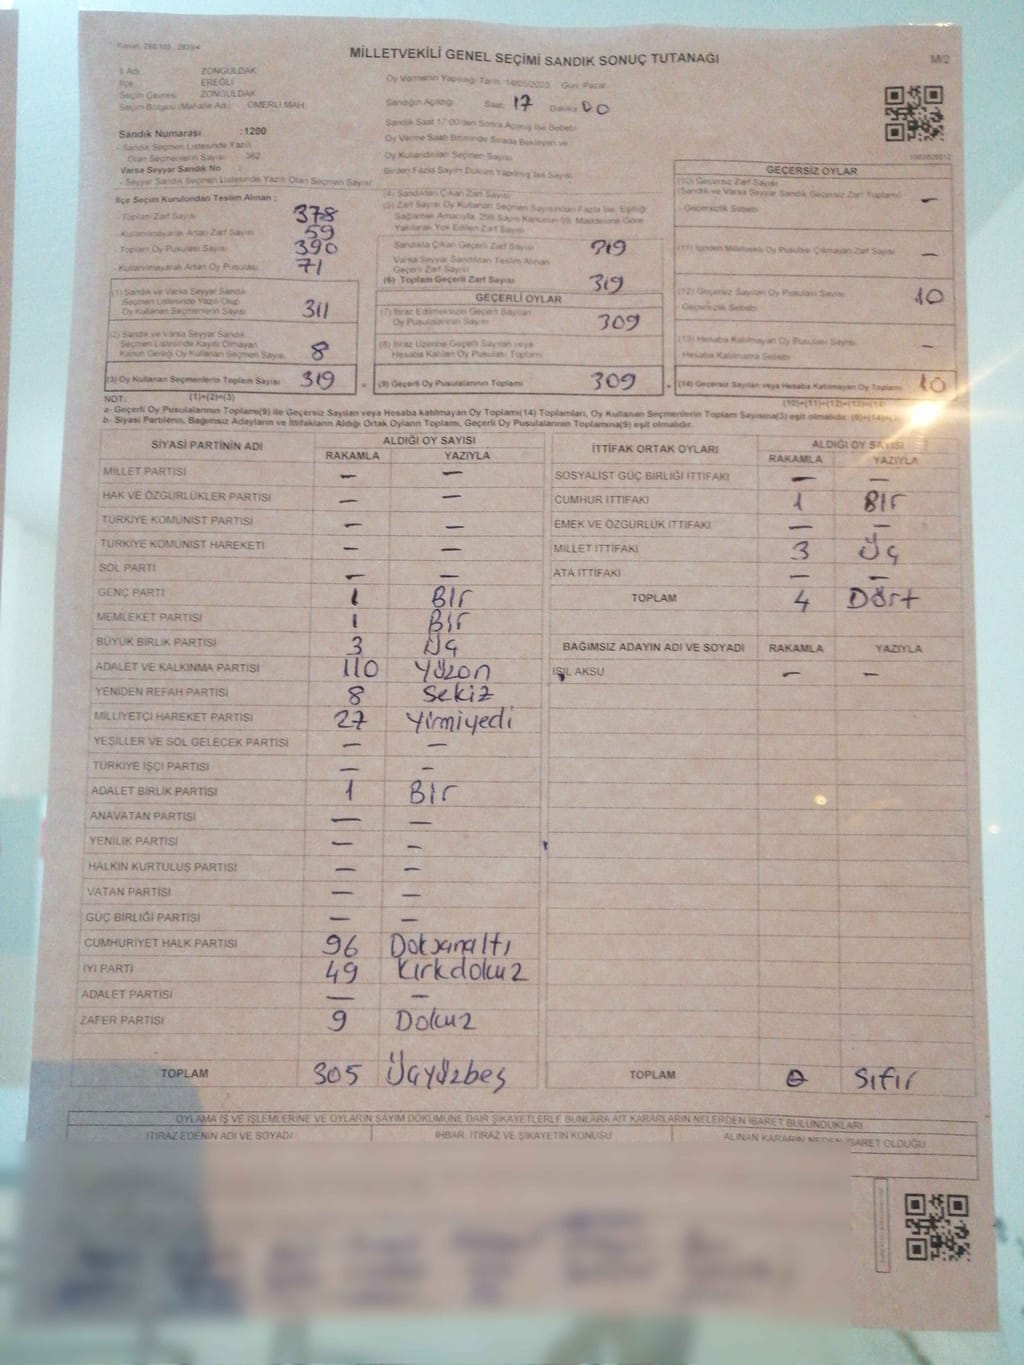 MİLLETVEKİLİ GENEL SEÇİMİ SANDIK SONUÇ TUTANAĞI
M/2
İl Adı ZONGULDAK
İlçe EREĞLİ
Seçim Çevresi ZONGULDAK
Seçim Bölgesi (Mahalle Adı) ÖMERLİ MAH.
Sandık Numarası :1200
- Sandık Seçmen Listesinde Yazılı
Olan Seçmenlerin Sayısı 362
Varsa Seyyar Sandık No :
- Seyyar Sandık Seçmen Listesinde Yazılı Olan Seçmen Sayısı
İlçe Seçim Kurulundan Teslim Alınan ;
- Toplam Zarf Sayısı 378
- Kullanılmayarak Artan Zarf Sayısı 59
- Toplam Oy Pusulası Sayısı 390
- Kullanılmayarak Artan Oy Pusulası 71
(1) Sandık ve Varsa Seyyar Sandık
Seçmen Listesinde Yazılı Olup
Oy Kullanan Seçmenlerin Sayısı 311
(2) Sandık ve Varsa Seyyar Sandık
Seçmen Listesinde Kayıtlı Olmayan
Kanun Gereği Oy Kullanan Seçmen Sayısı 8
(3) Oy Kullanan Seçmenlerin Toplam Sayısı 319
Oy Vermenin Yapıldığı Tarih: 14/05/2023 Gün: Pazar
Sandığın Açıldığı Saat: 17 Dakika: 00
Sandık Saat 17:00'den Sonra Açılmış İse Sebebi
Oy Verme Saati Bitiminde Sırada Bekleyen ve
Oy Kullandırılan Seçmen Sayısı
Birden Fazla Sayım Döküm Yapılmış İse Sayısı
(4) Sandıktan Çıkan Zarf Sayısı
(5) Zarf Sayısı Oy Kullanan Seçmen Sayısından Fazla İse, Eşitliği
Sağlamak Amacıyla, 298 Sayılı Kanunun 98. Maddesine Göre
Yakılarak Yok Edilen Zarf Sayısı
Sandıkta Çıkan Geçerli Zarf Sayısı 319
Varsa Seyyar Sandıktan Teslim Alınan
Geçerli Zarf Sayısı
(6) Toplam Geçerli Zarf Sayısı 319
GEÇERLİ OYLAR
(7) İtiraz Edilmeksizin Geçerli Sayılan
Oy Pusulalarının Sayısı 309
(8) İtiraz Üzerine Geçerli Sayılan veya
Hesaba Katılan Oy Pusulası Toplamı
(9) Geçerli Oy Pusulalarının Toplamı 309
GEÇERSİZ OYLAR
(10) Geçersiz Zarf Sayısı
(Sandık ve Varsa Seyyar Sandık Geçersiz Zarf Toplamı) -
- Geçersizlik Sebebi
(11) İçinden Milletvekili Oy Pusulası Çıkmayan Zarf Sayısı -
(12) Geçersiz Sayılan Oy Pusulası Sayısı 10
- Geçersizlik Sebebi
(13) Hesaba Katılmayan Oy Pusulası Sayısı -
Hesaba Katılmama Sebebi
(14) Geçersiz Sayılan veya Hesaba Katılmayan Oy Toplamı 10
NOT: (1)+(2)=(3) (10)+(11)+(12)+(13)=(14)
a- Geçerli Oy Pusulalarının Toplamı(9) ile Geçersiz Sayılan veya Hesaba katılmayan Oy Toplamı(14) Toplamları, Oy Kullanan Seçmenlerin Toplam Sayısına(3) eşit olmalıdır.
b- Siyasi Partilerin, Bağımsız Adayların ve İttifakların Aldığı Ortak Oyların Toplamı, Geçerli Oy Pusulalarının Toplamına(9) eşit olmalıdır.
SİYASİ PARTİNİN ADI ALDIĞI OY SAYISI
RAKAMLA YAZIYLA
MİLLET PARTİSİ - -
HAK VE ÖZGÜRLÜKLER PARTİSİ - -
TÜRKİYE KOMÜNİST PARTİSİ - -
TÜRKİYE KOMÜNİST HAREKETİ - -
SOL PARTİ - -
GENÇ PARTİ 1 Bir
MEMLEKET PARTİSİ 1 Bir
BÜYÜK BİRLİK PARTİSİ 3 Üç
ADALET VE KALKINMA PARTİSİ 110 Yüzon
YENİDEN REFAH PARTİSİ 8 Sekiz
MİLLİYETÇİ HAREKET PARTİSİ 27 Yirmiyedi
YEŞİLLER VE SOL GELECEK PARTİSİ - -
TÜRKİYE İŞÇİ PARTİSİ - -
ADALET BİRLİK PARTİSİ 1 Bir
ANAVATAN PARTİSİ - -
YENİLİK PARTİSİ - -
HALKIN KURTULUŞ PARTİSİ - -
VATAN PARTİSİ - -
GÜÇ BİRLİĞİ PARTİSİ - -
CUMHURİYET HALK PARTİSİ 96 Doksanaltı
İYİ PARTİ 49 Kırkdokuz
ADALET PARTİSİ - -
ZAFER PARTİSİ 9 Dokuz
TOPLAM 305 Üçyüzbeş
İTTİFAK ORTAK OYLARI ALDIĞI OY SAYISI
RAKAMLA YAZIYLA
SOSYALİST GÜÇ BİRLİĞİ İTTİFAKI - -
CUMHUR İTTİFAKI 1 Bir
EMEK VE ÖZGÜRLÜK İTTİFAKI - -
MİLLET İTTİFAKI 3 Üç
ATA İTTİFAKI - -
TOPLAM 4 Dört
BAĞIMSIZ ADAYIN ADI VE SOYADI RAKAMLA YAZIYLA
IŞIL AKSU - -
TOPLAM 0 Sıfır
OYLAMA İŞ VE İŞLEMLERİNE VE OYLARIN SAYIM DÖKÜMÜNE DAİR ŞİKAYETLERLE BUNLARA AİT KARARLARIN NELERDEN İBARET BULUNDUKLARI
İTİRAZ EDENİN ADI VE SOYADI İHBAR, İTİRAZ VE ŞİKAYETİN KONUSU ALINAN KARARIN NEDEN İBARET OLDUĞU